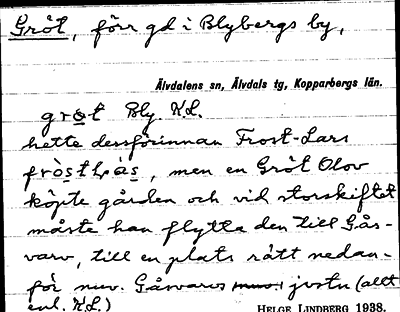 Gröt, förr gd i Blybergs by,
Älvdalens sn, Älvdals tg, Kopparbergs län.
grøt Bly. K.L.
hette dessförinnan Frost-Lars
, men en Gröt Olov
köpte gården och vid storskiftet
måste han flytta den till Gås-
varv, till en plats rätt nedan-
för nuv. Gåsvarvs justu (allt
enl. K.L.)
HELGE LINDBERG 1938.